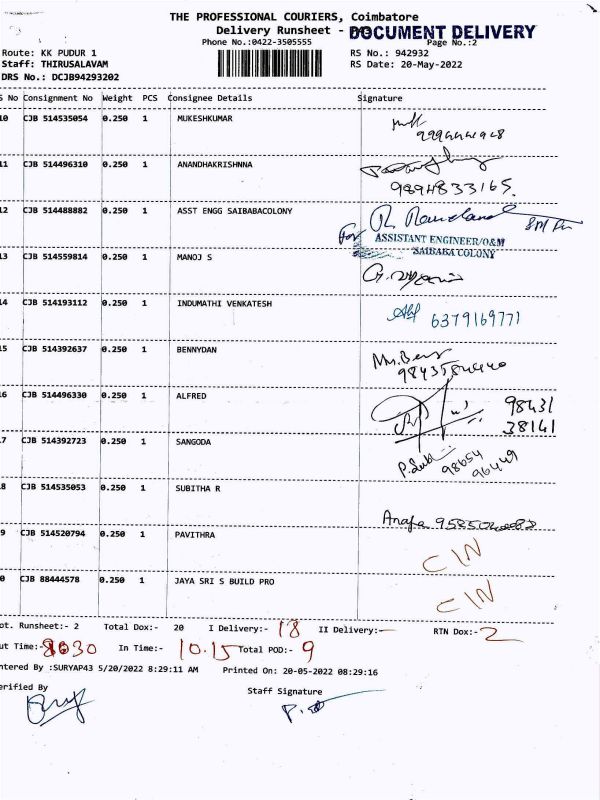 THE PROFESSIONAL COURIERS, Coimbatore
Delivery Runsheet - DOCUMENT DELIVERY
Phone No.:0422-3505555 Page No.:2
Route: KK PUDUR 1 RS No.: 942932
Staff: THIRUSALAVAM RS Date: 20-May-2022
DRS No.: DCJB94293202
S No Consignment No Weight PCS Consignee Details Signature
10 CJB 514535054 0.250 1 MUKESHKUMAR
11 CJB 514496310 0.250 1 ANANDHAKRISHNNA
9894833165.
12 CJB 514488882 0.250 1 ASST ENGG SAIBABACOLONY
For ASSISTANT ENGINEER/O&M
SAIBABA COLONY
13 CJB 514559814 0.250 1 MANOJ S
14 CJB 514193112 0.250 1 INDUMATHI VENKATESH
6379169771
15 CJB 514392637 0.250 1 BENNYDAN
16 CJB 514496330 0.250 1 ALFRED
98431
38141
17 CJB 514392723 0.250 1 SANGODA
98654
96449
18 CJB 514535053 0.250 1 SUBITHA R
19 CJB 514520794 0.250 1 PAVITHRA
C/N
20 CJB 88444578 0.250 1 JAYA SRI S BUILD PRO
C/N
Tot. Runsheet:- 2 Total Dox:- 20 I Delivery:- 18 II Delivery:- RTN Dox:- 2
Out Time:- 8030 In Time:- 10.15 Total POD:- 9
Entered By :SURYAP43 5/20/2022 8:29:11 AM Printed On: 20-05-2022 08:29:16
Verified By Staff Signature